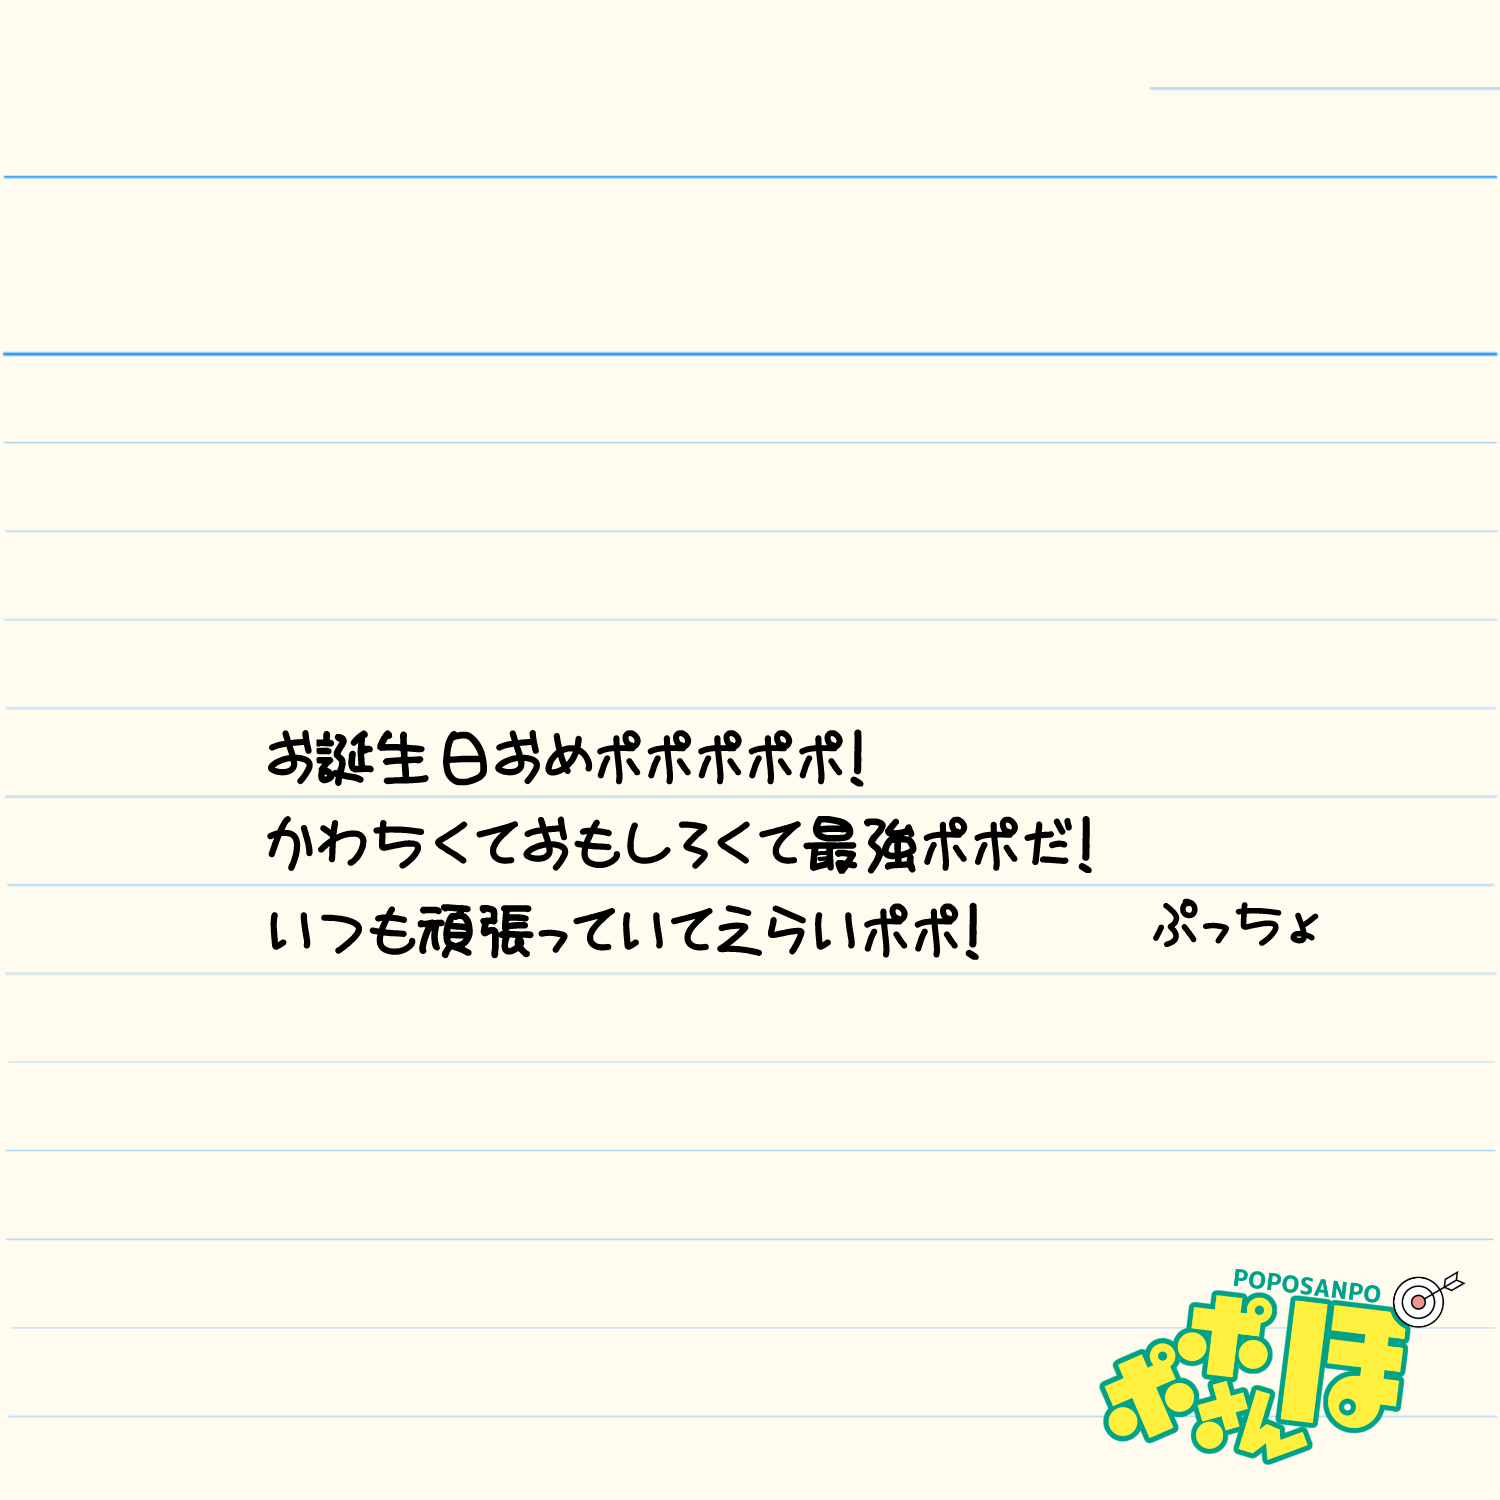 お誕生日おめポポポポポ!
かわちくておもしろくて最強ポポだ!
いつも頑張っていてえらいポポ!
ぷっちょ
POPOSANPO
ポポさんぽ